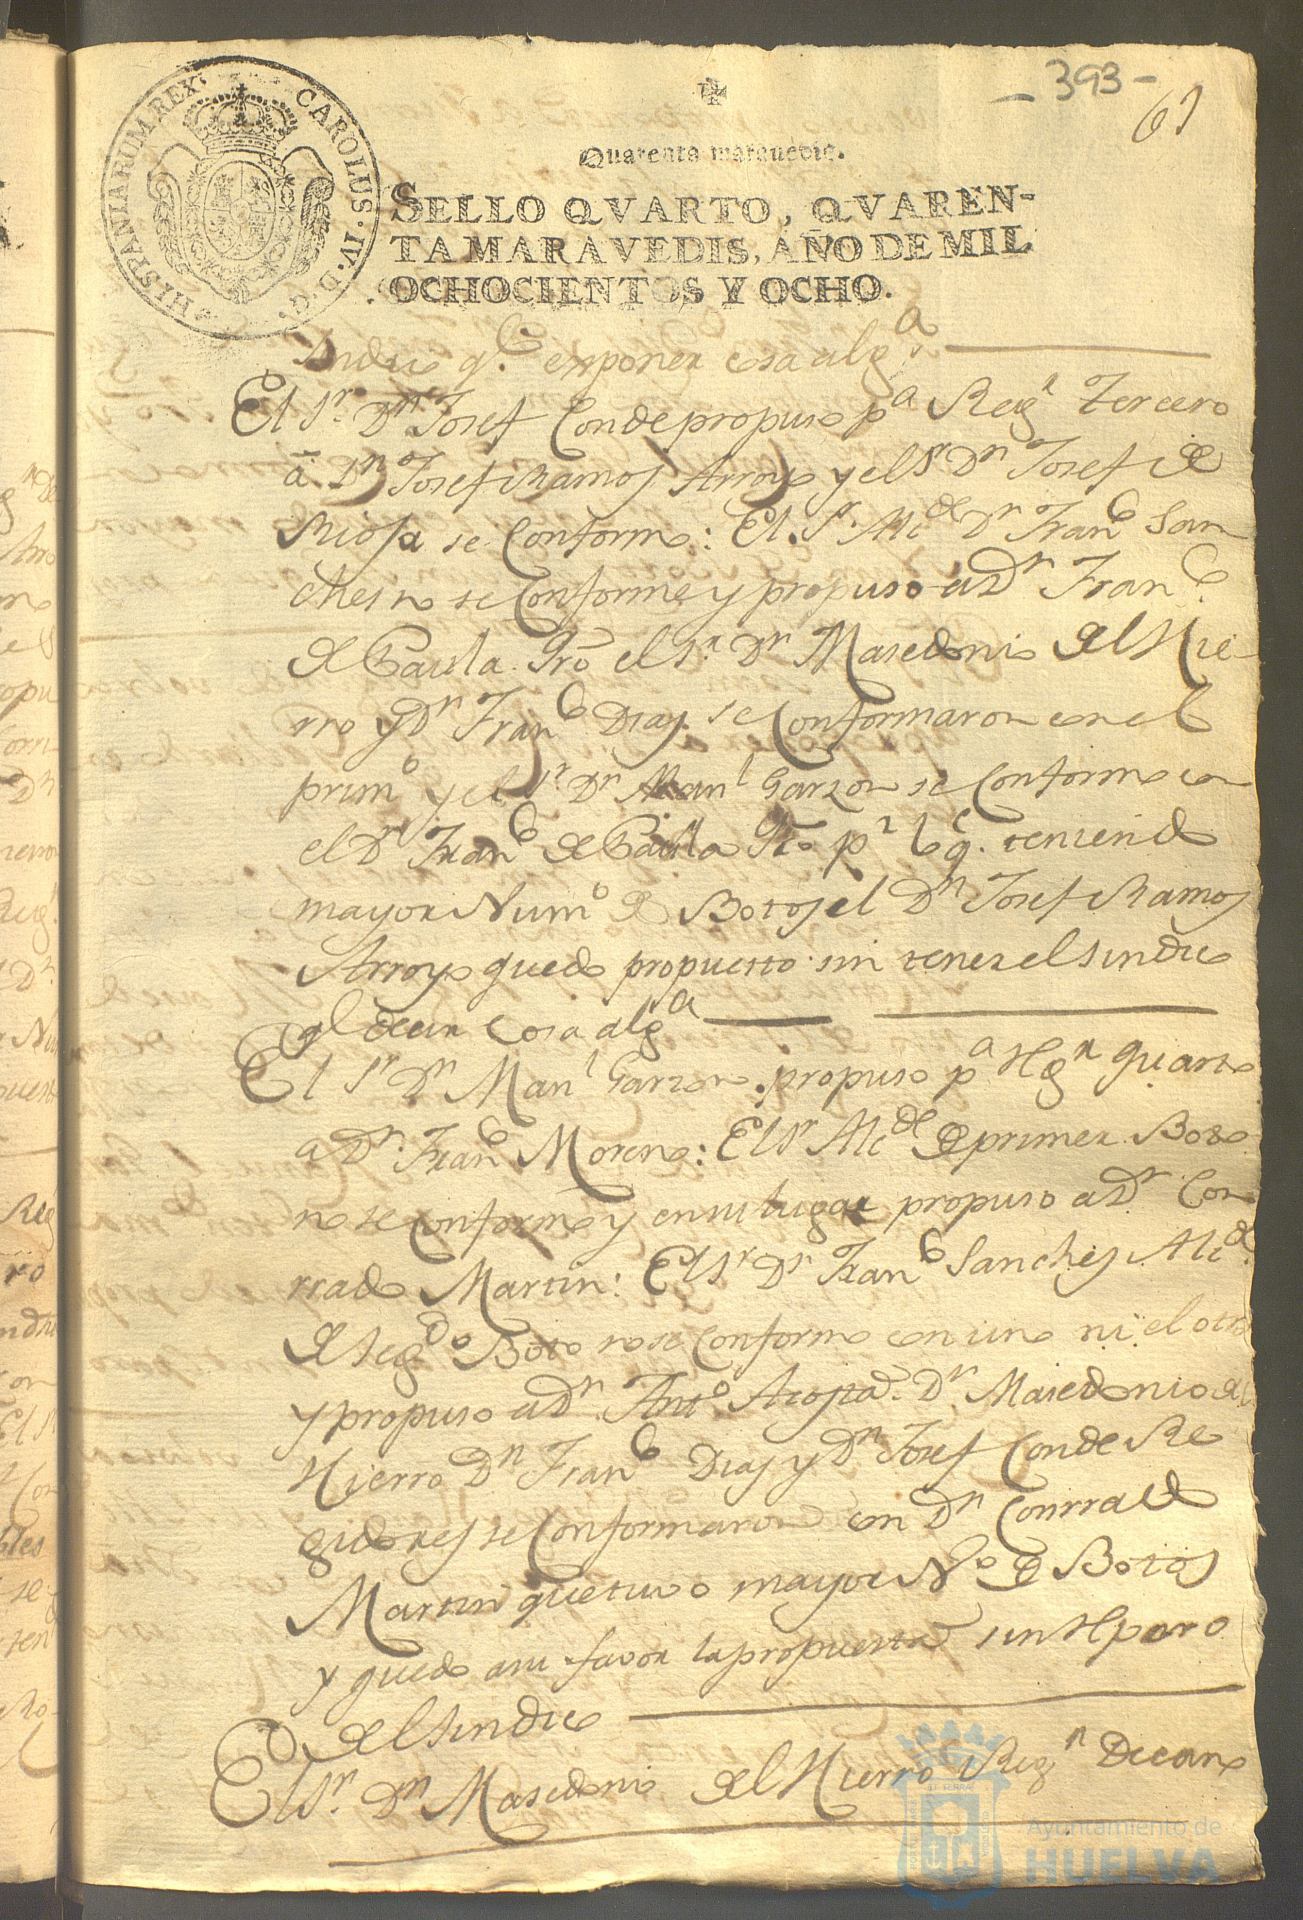 393
61
HISPANIARUM REX CAROLUS·IV·D·G·
Quarenta marauedis.
SELLO QVARTO, QVAREN-
TA MARAVEDIS, AÑO DE MIL
OCHOCIENTOS Y OCHO.
Sindico qe. exponer cosa alga.
El Sr. Dn Josef Conde propuso pa Regr Tercero
a Dn Josef Ramos Arroyo y el Sr Dn Josef de
Rioja se Conformo: El Sr. Alcde Dn Franco San
ches no se Conforme y propuso a Dn Franco
de Paula el Sr. Dn Masedonio del Hie-
rro y Dn Franco Dias se Conformaron con el
primo y el Sr Dn Manl Garzon se Conformo con
el Dn Franco de Paula pr lo q. teniendo
mayor Numo de Botos el Dn Josef Ramos
Arroyo quedo propuesto sin tener el sindico
qe decir Cosa alga
El Sr Dn Manl Garzon propuso pa Rgr quarto
a Dn Franco Moreno: El Sr Alcde de primer Boto
no se Conformo y en su lugar propuso a Dn Con
rrado Martin: El Sr Dn Franco Sanches Alcde
de segdo Boto no se Conformo con uno ni el otro
y propuso a Dn Anto Acosta. Dn Masedonio del
Hierro Dn Franco Dias y Dn Josef Conde Re
gidores se Conformaron con Dn Conrrado
Martin que tuvo mayor No de Botos
y quedo a su favor la propuesta sin Reparo
del sindico
El Sr. Dn Masedonio del Hierro Regr Decano
Ayuntamiento de
HUELVA